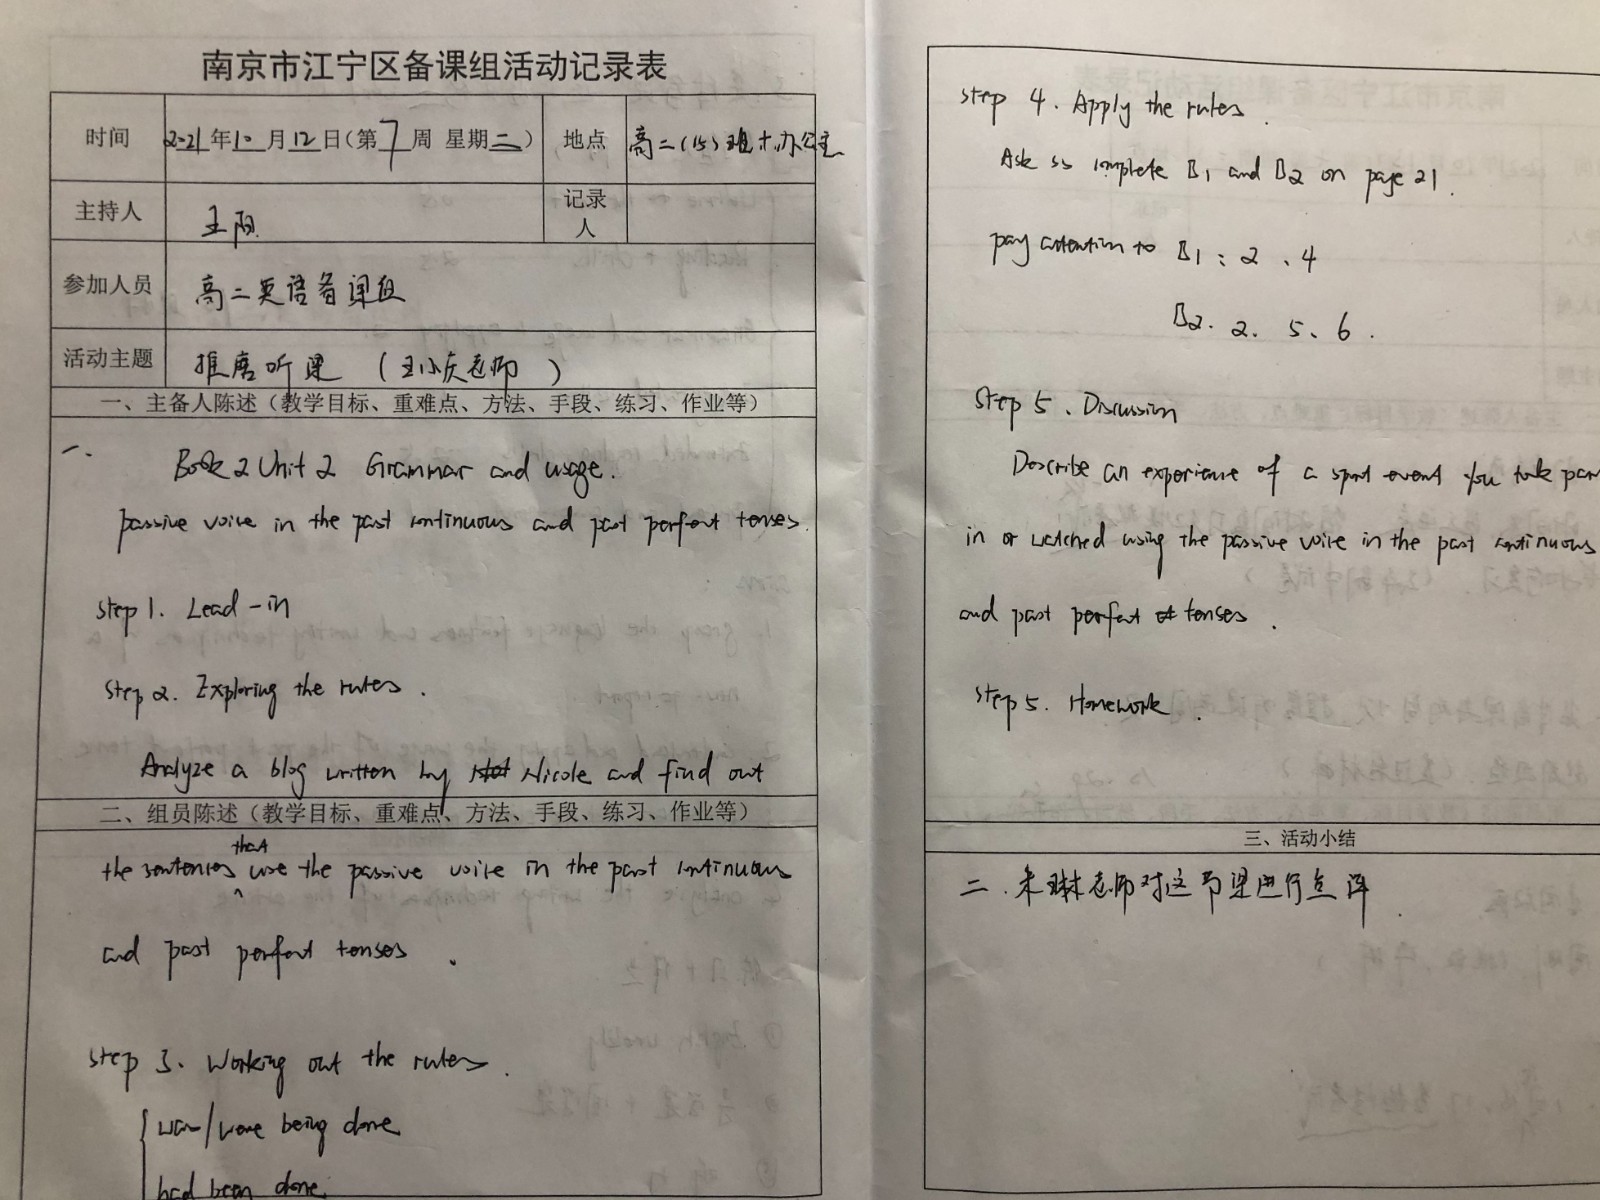 南京市江宁区备课组活动记录表
时间 2021年10月12日(第7周 星期二) 地点 高二(15)班+办公室
主持人 王阳 记录人
参加人员 高二英语备课组
活动主题 推磨听课 (王小庆老师)
一、主备人陈述(教学目标、重难点、方法、手段、练习、作业等)
一.
Book 2 Unit 2 Grammar and usage.
passive voice in the past continuous and past perfect tenses.
step 1. Lead-in
step 2. Exploring the rules.
Analyze a blog written by Nicole and find out
二、组员陈述(教学目标、重难点、方法、手段、练习、作业等)
the sentences that use the passive voice in the past continuous
and past perfect tenses.
step 3. Working out the rules.
was/were being done
had been done
step 4. Apply the rules.
Ask ss complete B1 and B2 on page 21.
pay attention to B1: 2、4
B2. 2. 5、6.
Step 5. Discussion
Describe an experience of a sport event you took part
in or watched using the passive voice in the past continuous
and past perfect tenses.
step 5. Homework.
三、活动小结
二.朱琳老师对这节课进行点评.